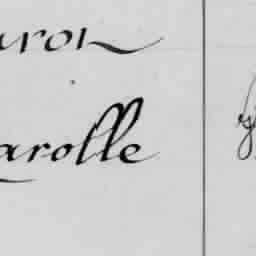 aron
arolle